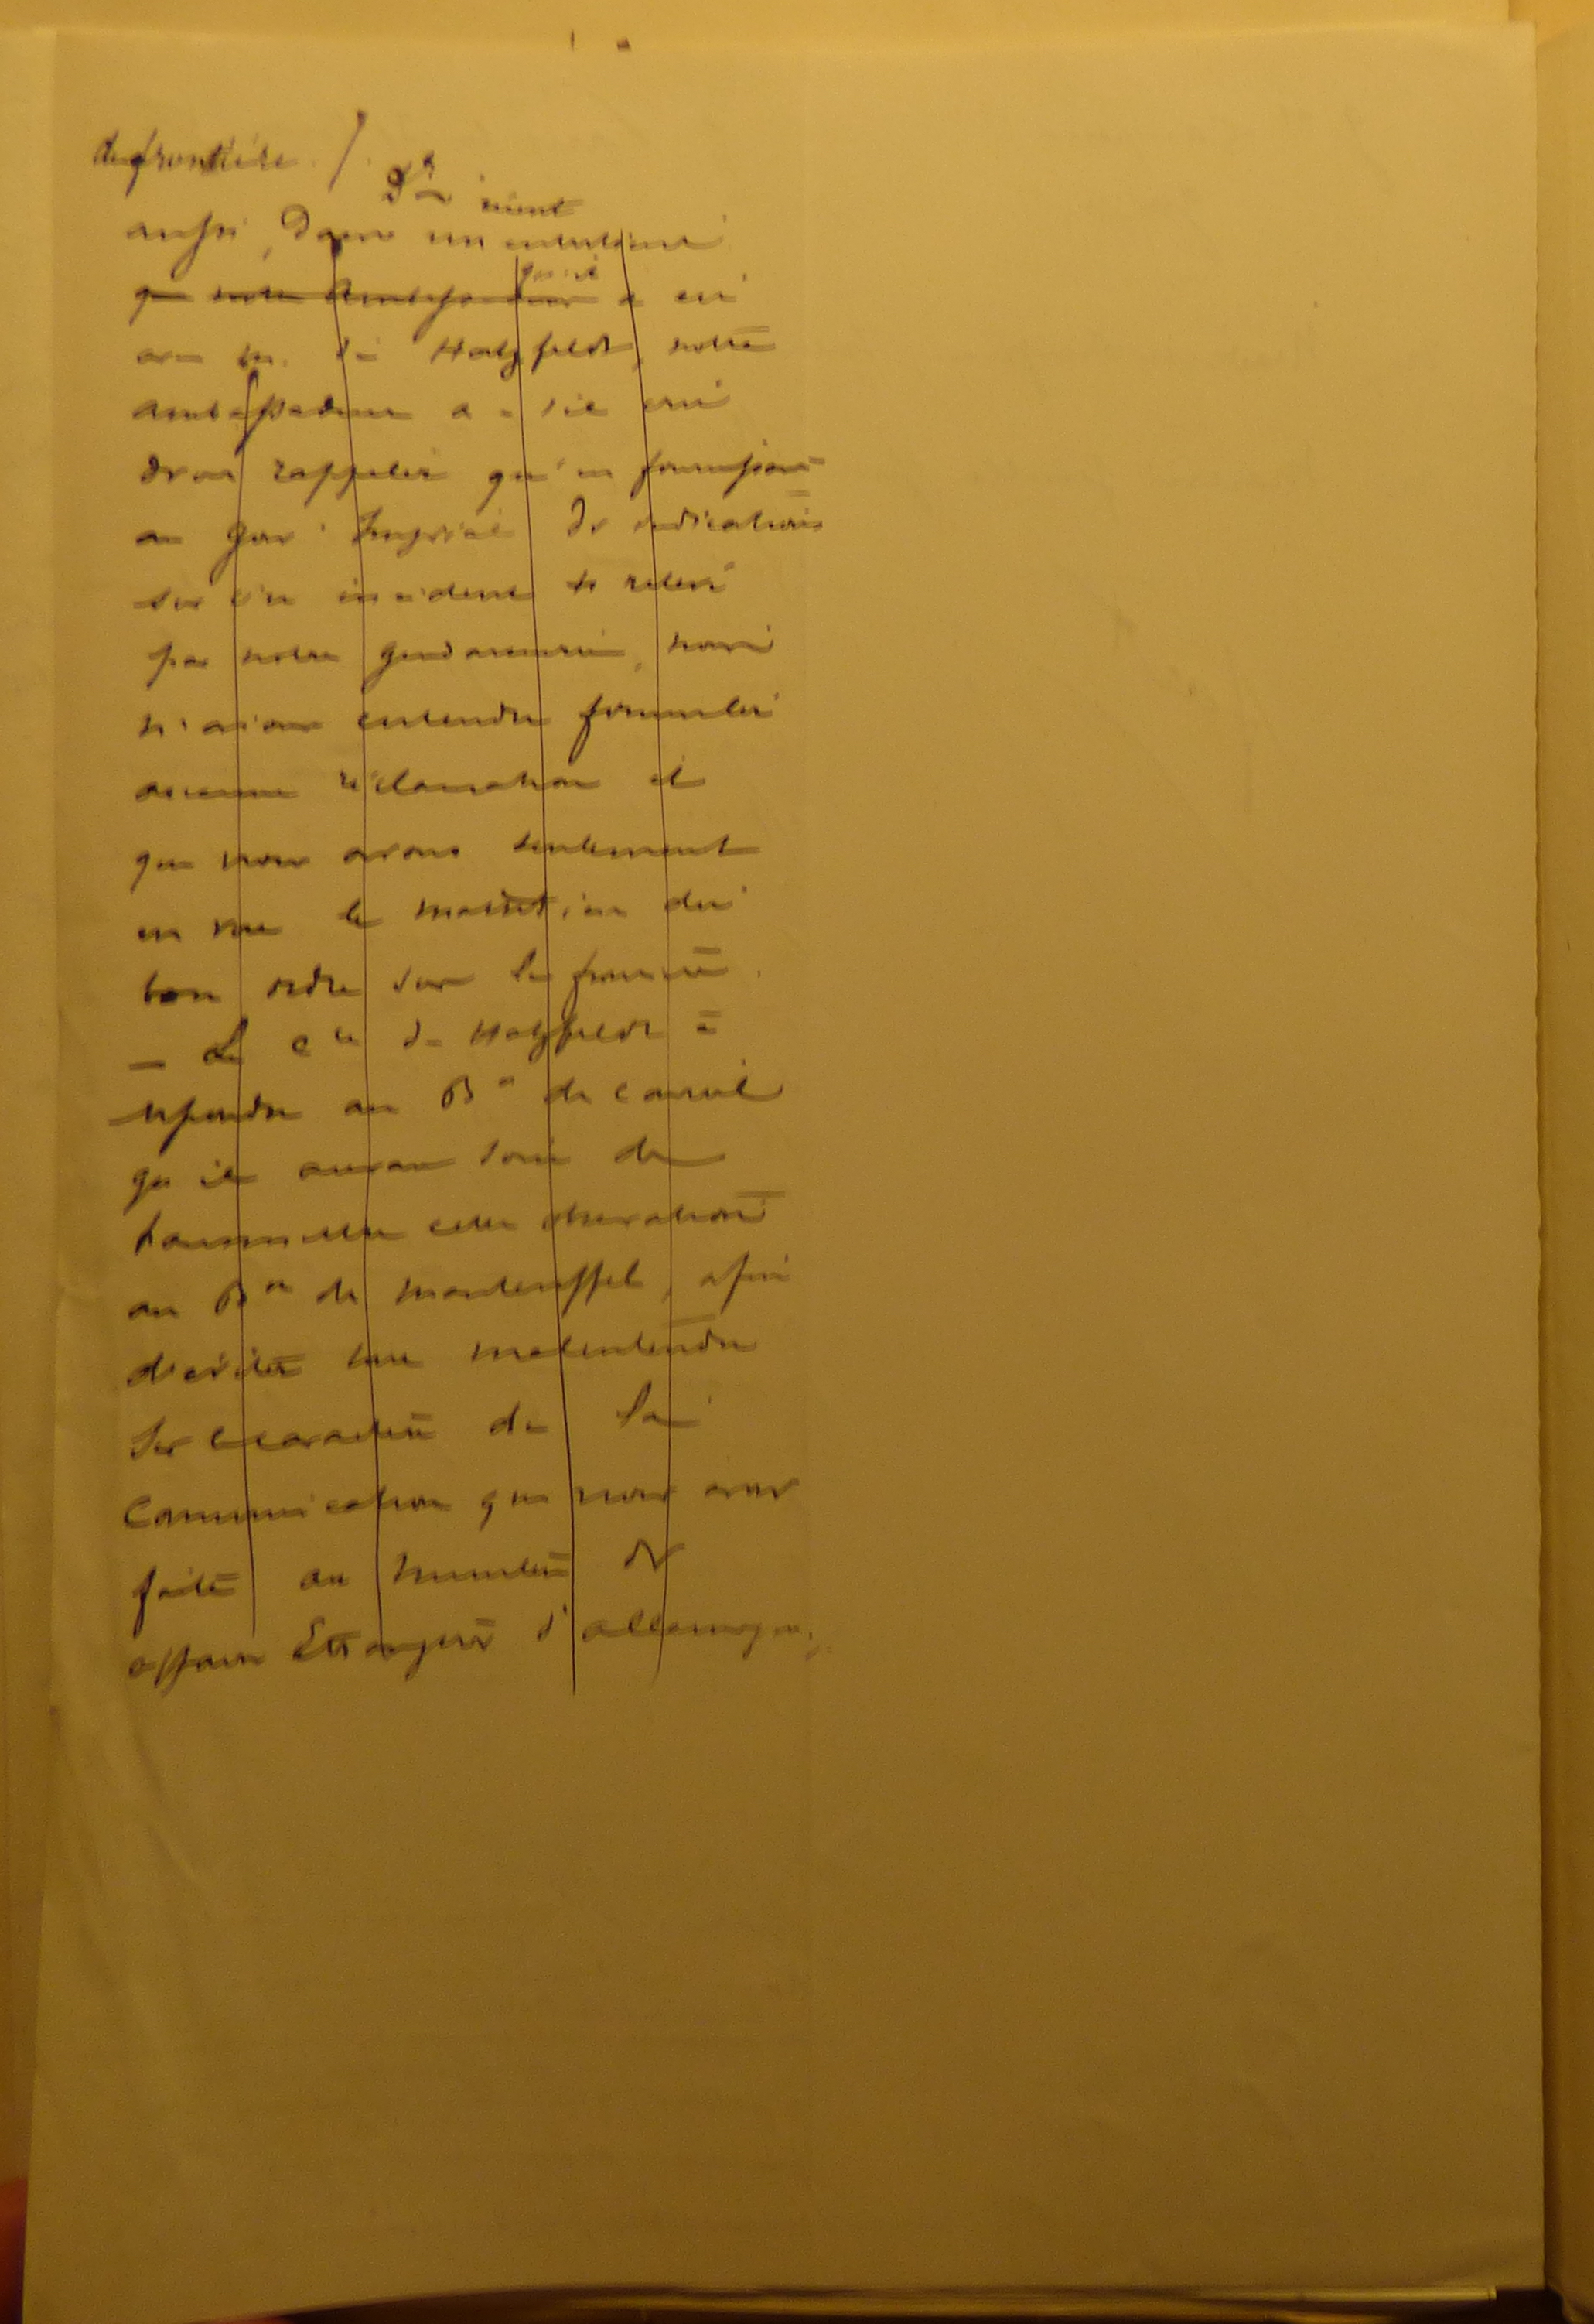 de frontière. /.
aussi, Dans un entretien
que notre Ambassadeur qu'il a eu
avec M. de Hatzfeldt, notre
ambassadeur a-t-il cru
devoir rappeler qu'en fournissant
au Gouv Impérial des indications
sur un incident relevé
par notre gendarmerie, nous
n'avions entendu formuler
aucune réclamation et
que nous avons seulement
en vue le maintien du
bon ordre sur la frontière.
_ Le Cte de Hatzfeldt a
répondu au Bon de Courcel
qu'il aurait soin de
transmettre cette observation
au Bon de Manteuffel, afin
d'éviter tout malentendu
sur le caractère de la
Communication que nous avons
faite au Ministère des
affaires Étrangères d'allemagne.